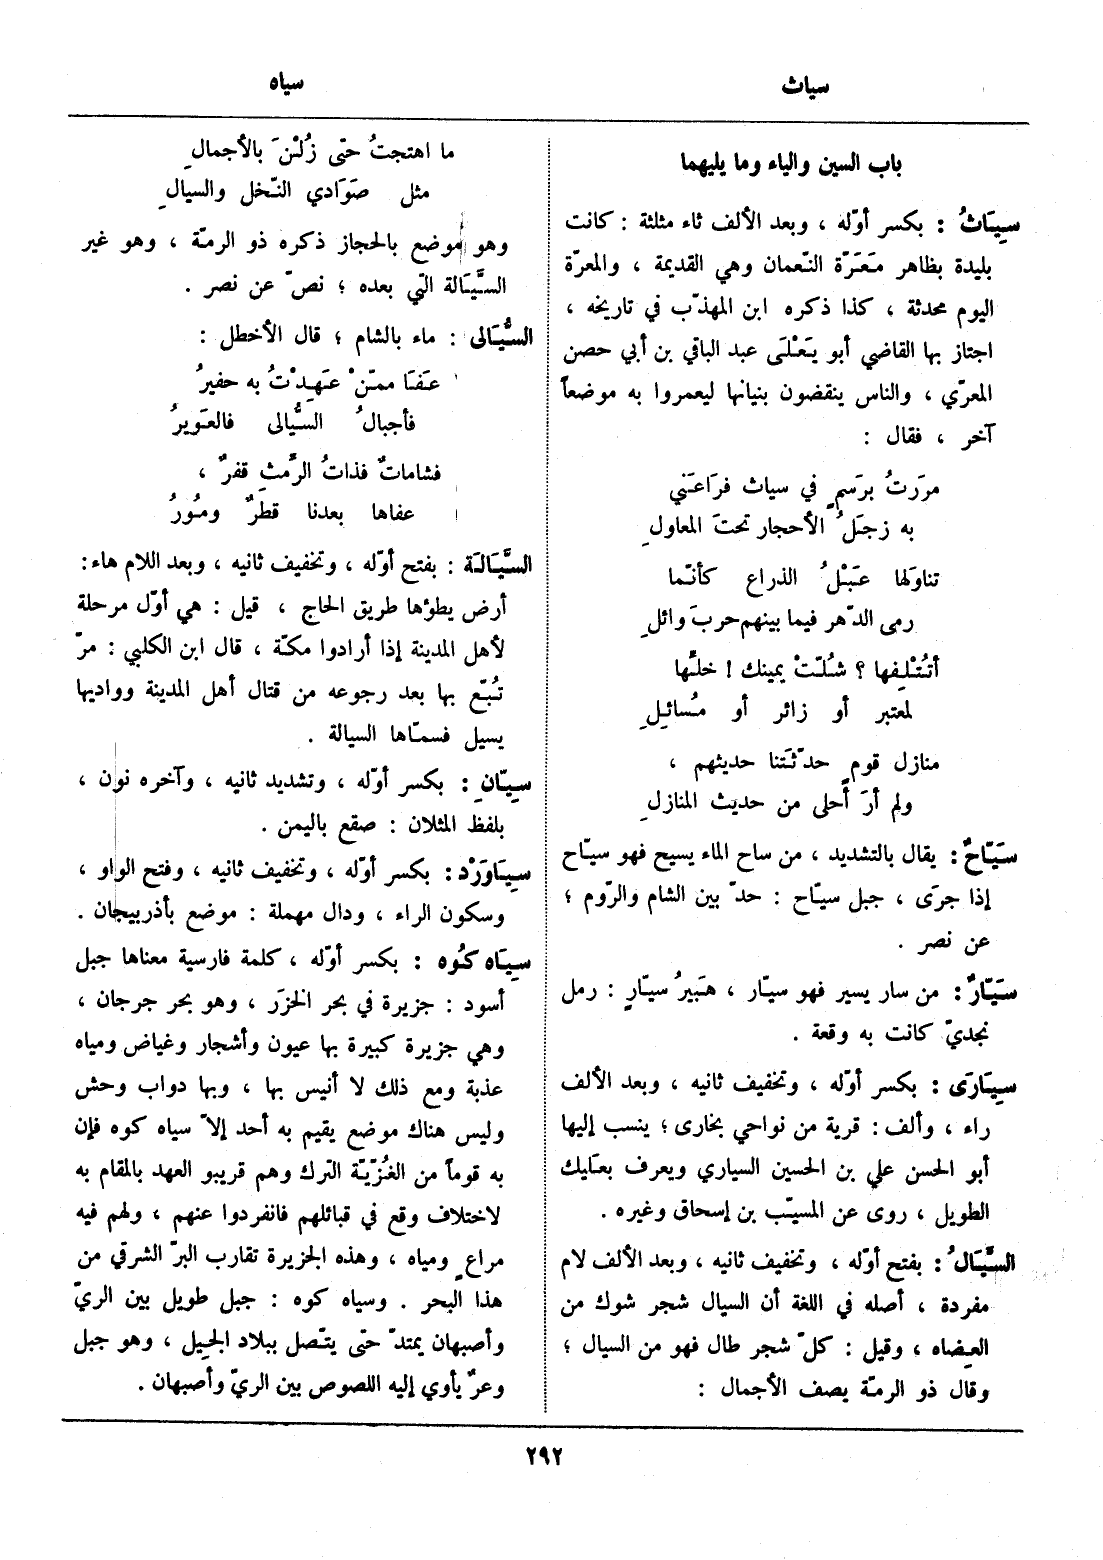 سياث
سياه
باب السين والياء وما يليهما
سِيَاثُ : بكسر أوّله ، وبعد الألف ثاء مثلثة : كانت
بليدة بظاهر مَعَرّة النّعمان وهي القديمة ، والمعرّة
اليوم محدثة ، كذا ذكره ابن المهذّب في تاريخه ،
اجتاز بها القاضي أبو يَعْلَى عبد الباقي بن أبي حصن
المعرّي ، والناس ينقضون بنيانها ليعمروا به موضعاً
آخر ، فقال :
مرَرتُ برَسمٍ في سياث فرَاعَني
به زجَلُ الأحجار تحتَ المعاولِ
تناوَلها عَبْلُ الذراع كأنّما
رمى الدّهر فيما بينهم حربَ وائلِ
أتُتْلِفها ؟ شُلّتْ يمينك ! خلّها
لمعتبر أو زائر أو مُسائلِ
منازل قومٍ حدّثَتنا حديثهم ،
ولم أرَ أحلى من حديث المنازلِ
سَيّاحٌ : يقال بالتشديد ، من ساح الماء يسيح فهو سيّاح
إذا جرَى ، جبل سيّاح : حدّ بين الشام والرّوم ؛
عن نصر .
سَيّارٌ : من سار يسير فهو سيّار ، هَبيرُ سيّارٍ : رمل
نجديّ كانت به وقعة .
سِيَارَى : بكسر أوّله ، وتخفيف ثانيه ، وبعد الألف
راء ، وألف : قرية من نواحي بخارى ؛ ينسب إليها
أبو الحسن علي بن الحسين السياري ويعرف بعَليك
الطويل ، روى عن المسيّب بن إسحاق وغيره .
السَّيَالُ : بفتح أوّله ، وتخفيف ثانيه ، وبعد الألف لام
مفردة ، أصله في اللغة أن السيال شجر شوك من
العِضاه ، وقيل : كلّ شجر طال فهو من السيال ؛
وقال ذو الرمّة يصف الأجمال :
ما اهتجتُ حتى زُلْنَ بالأجمالِ
مثل صَوَادي النّخل والسيالِ
وهو موضع بالحجاز ذكره ذو الرمّة ، وهو غير
السَّيَالة التي بعده ؛ نصّ عن نصر .
السُّيَالى : ماء بالشام ؛ قال الأخطل :
عَفَا ممّنْ عَهِدْتُ به حفيرُ
فأجبالُ السُّيالى فالعَويرُ
فشاماتٌ فذاتُ الرِّمْثِ قفرٌ ،
عفاها بعدنا قطَرٌ ومُورُ
السَّيَالَة : بفتح أوّله ، وتخفيف ثانيه ، وبعد اللام هاء :
أرض يطؤها طريق الحاج ، قيل : هي أوّل مرحلة
لأهل المدينة إذا أرادوا مكّة ، قال ابن الكلبي : مرّ
تُبّع بها بعد رجوعه من قتال أهل المدينة وواديها
يسيل فسمّاها السيالة .
سِيّانِ : بكسر أوّله ، وتشديد ثانيه ، وآخره نون ،
بلفظ المثلان : صقع باليمن .
سِيَاوَرْد : بكسر أوّله ، وتخفيف ثانيه ، وفتح الواو ،
وسكون الراء ، ودال مهملة : موضع بأذربيجان .
سِيَاه كُوه : بكسر أوّله ، كلمة فارسية معناها جبل
أسود : جزيرة في بحر الخزَر ، وهو بحر جرجان ،
وهي جزيرة كبيرة بها عيون وأشجار وغياض ومياه
عذبة ومع ذلك لا أنيس بها ، وبها دواب وحش
وليس هناك موضع يقيم به أحد إلاّ سياه كوه فإن
به قوماً من الغُزّيّة الترك وهم قريبو العهد بالمقام به
لاختلاف وقع في قبائلهم فانفردوا عنهم ، ولهم فيه
مراعٍ ومياه ، وهذه الجزيرة تقارب البرّ الشرقي من
هذا البحر . وسياه كوه : جبل طويل بين الريّ
وأصبهان يمتدّ حتى يتّصل ببلاد الجِيل ، وهو جبل
وعرٌ يأوي إليه اللصوص بين الريّ وأصبهان .
٢٩٢